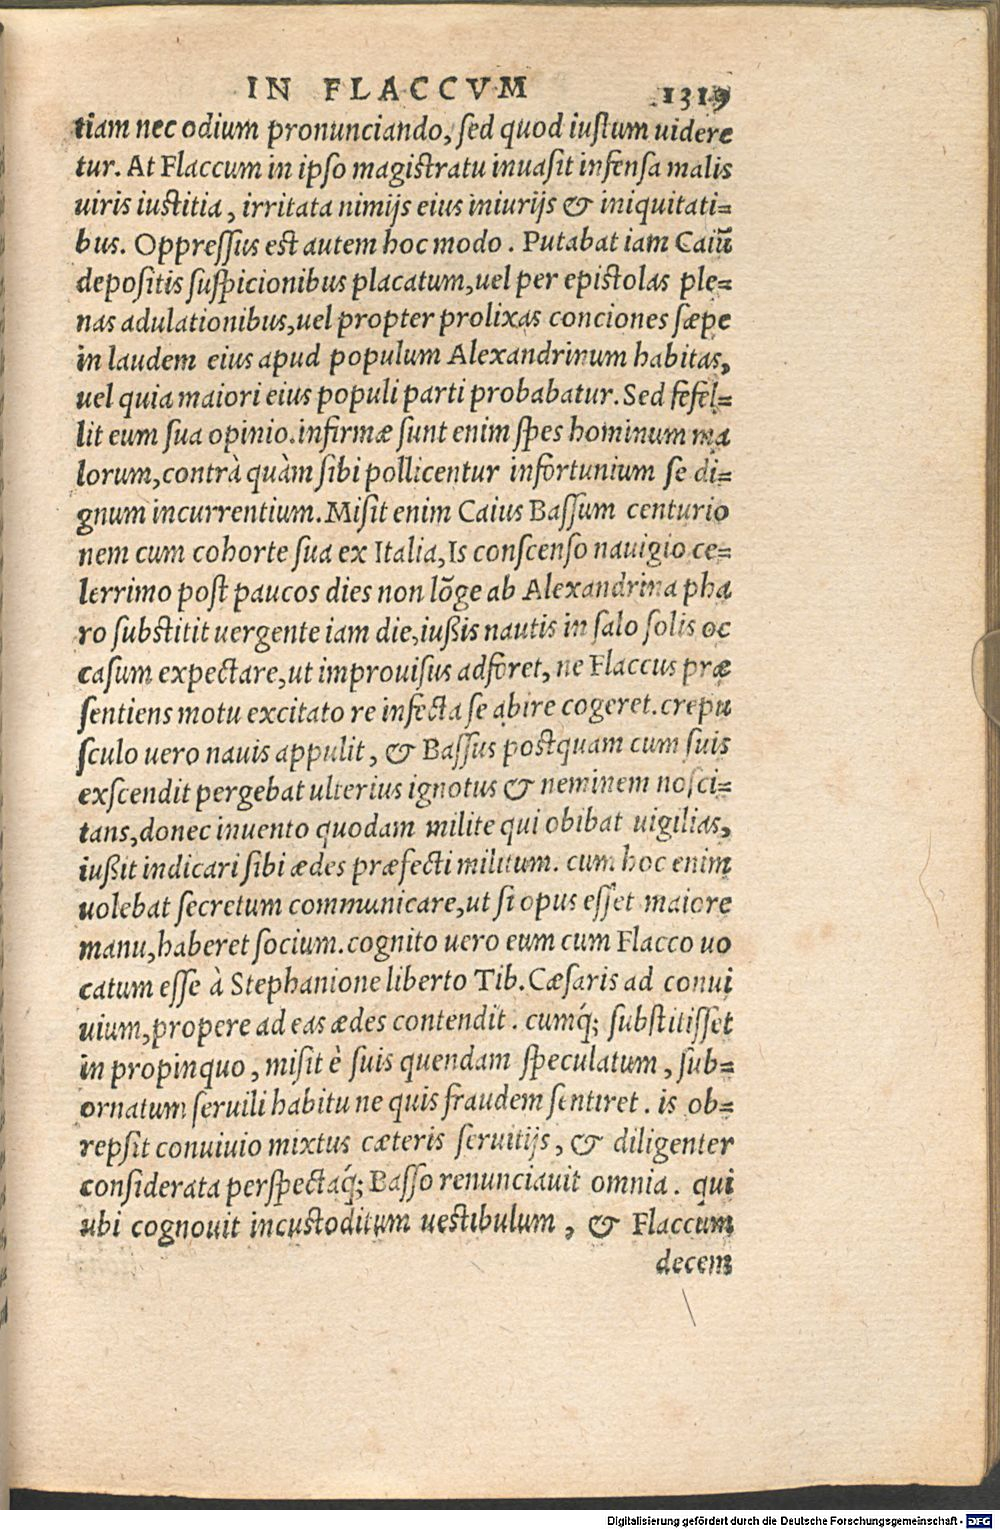 IN FLACCVM 1319
tiam nec odium pronunciando, sed quod iustum uidere
tur. At Flaccum in ipso magistratu inuasit infensa malis
uiris iustitia, irritata nimijs eius iniurijs & iniquitati=
bus. Oppressus est autem hoc modo. Putabat iam Caiũ
depositis suspicionibus placatum, uel per epistolas ple=
nas adulationibus, uel propter prolixas conciones sæpe
in laudem eius apud populum Alexandrinum habitas,
uel quia maiori eius populi parti probabatur. Sed fefel=
lit eum sua opinio. infirmæ sunt enim spes hominum ma
lorum, contrà quàm sibi pollicentur infortunium se di=
gnum incurrentium. Misit enim Caius Bassum centurio
nem cum cohorte sua ex Italia, Is conscenso nauigio ce=
lerrimo post paucos dies non lõge ab Alexandrina pha
ro substitit uergente iam die, iußis nautis in salo solis oc
casum expectare, ut improuisus adforet, ne Flaccus præ
sentiens motu excitato re infecta se abire cogeret. crepu
sculo uero nauis appulit, & Bassus postquam cum suis
exscendit pergebat ulterius ignotus & neminem nosci=
tans, donec inuento quodam milite qui obibat uigilias,
iußit indicari sibi ædes præfecti militum. cum hoc enim
uolebat secretum communicare, ut si opus esset maiore
manu, haberet socium. cognito uero eum cum Flacco uo
catum esse à Stephanione liberto Tib. Cæsaris ad conui
uium, propere ad eas ædes contendit. cumq́; substitisset
in propinquo, misit è suis quendam speculatum, sub=
ornatum seruili habitu ne quis fraudem sentiret. is ob=
repsit conuiuio mixtus cæteris seruitijs, & diligenter
considerata perspectaq́; Basso renunciauit omnia. qui
ubi cognouit incustoditum uestibulum, & Flaccum
decem
Digitalisierung gefördert durch die Deutsche Forschungsgemeinschaft - DFG